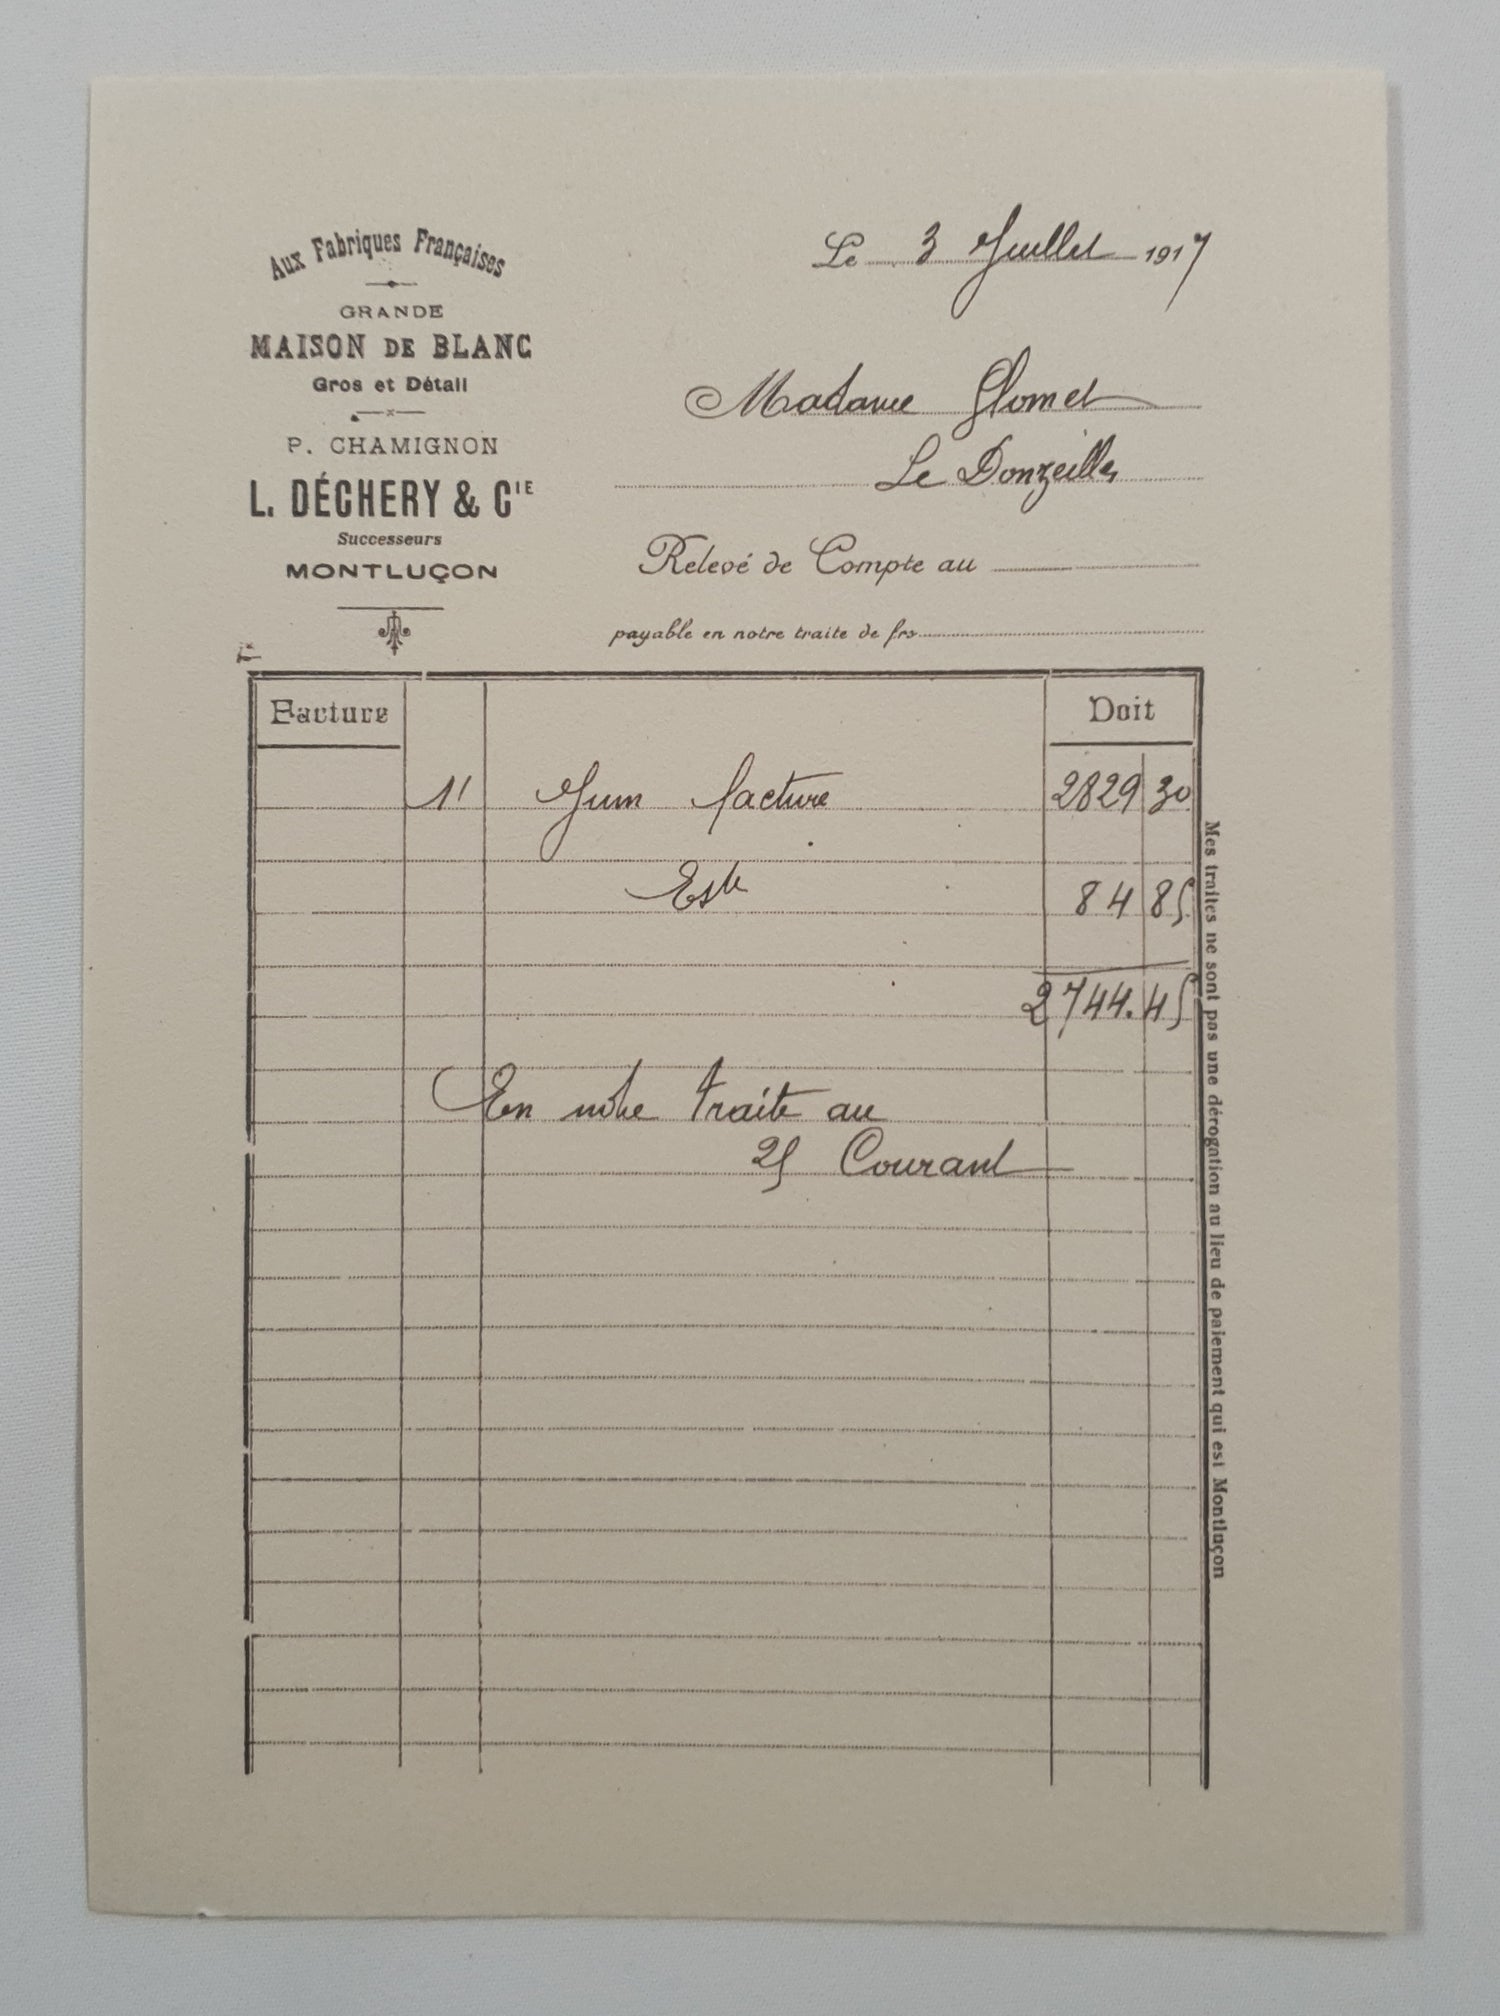 Aux Fabriques Françaises
GRANDE
MAISON DE BLANC
Gros et Détail
P. CHAMIGNON
L. DÉCHERY & CIE
Successeurs
MONTLUÇON
Le 3 Juillet 1917
Madame Glomet
Le Donzeille
Relevé de Compte au
payable en notre traite de frs
Facture Doit
11 Juin facture 2829 30
Este 84 85
2744.45
En notre traite au
25 Courant
Mes traites ne sont pas une dérogation au lieu de paiement qui est Montluçon